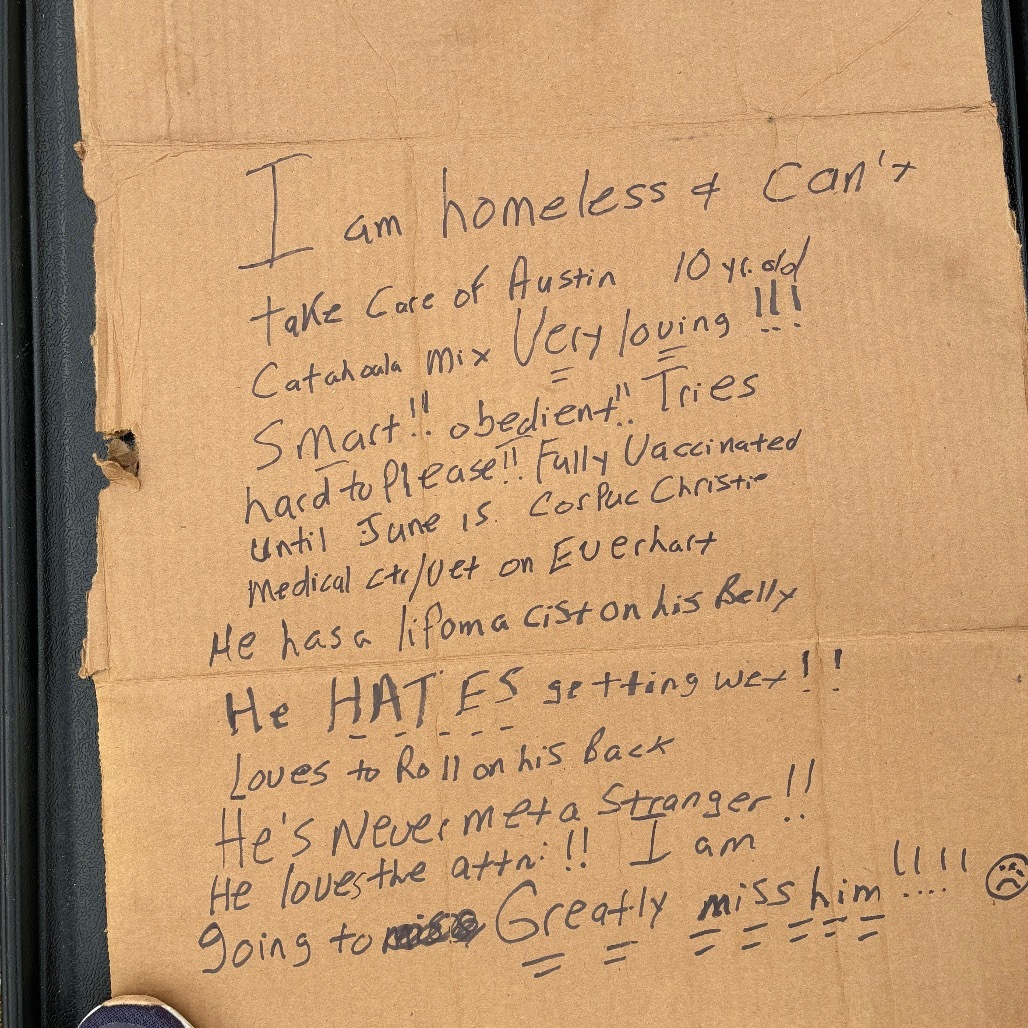 I am homeless & can't
take Care of Austin 10 yr. old
Catahoula mix Very loving !!!
Smart!! obedient!! Tries
hard to Please!! Fully Vaccinated
until June 15. Corpuc Christie
Medical ctr/vet on Everhart
He has a lipoma cist on his Belly
He HATES getting wet!!
Loves to Roll on his Back
He's Never met a Stranger!!
He loves the attn: !! I am
going to Greatly miss him!!!!